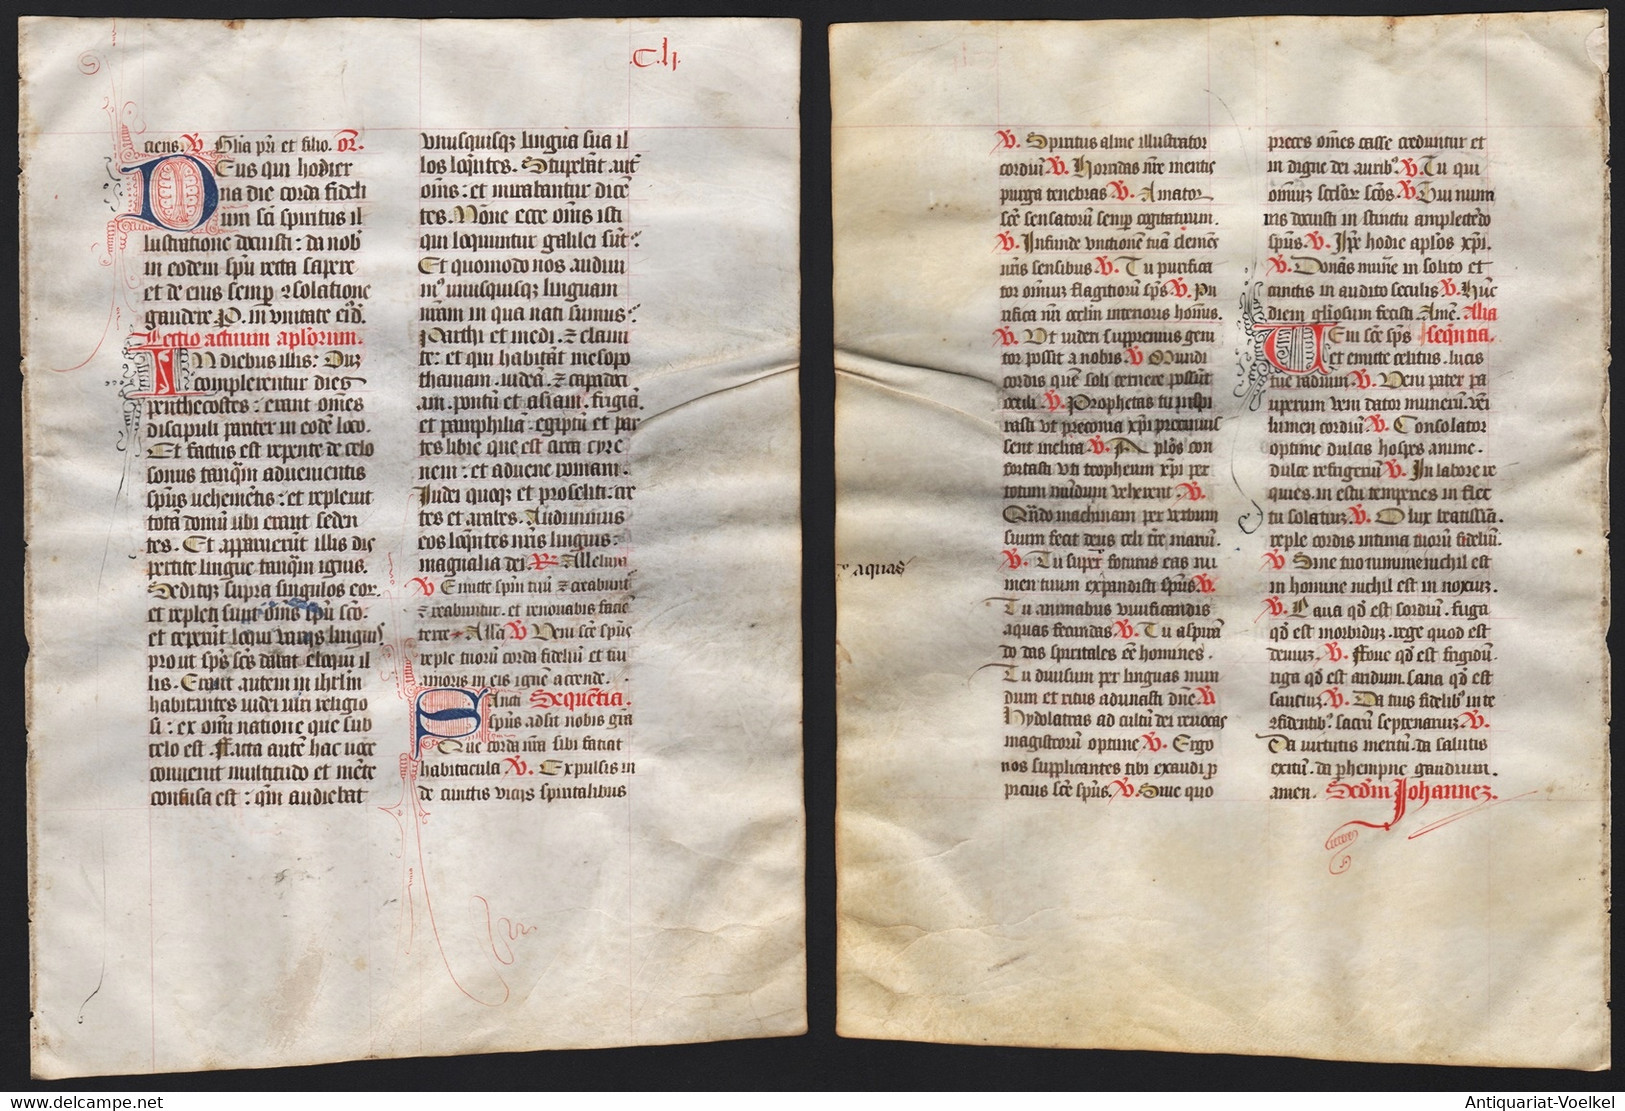 .C.li.
ciens. V. Glia pri et filio. Or.
Deus qui hodier
na die corda fideli
um sci spiritus il
lustratione docuisti: da nob
in eodem spu recta sapere
et de eius semp 2solatione
gaudere P. in vnitate eiɗ.
Lectio actuum aplorum.
In diebus illis: Dum
complerentur dies
penthecostes: erant omes
discipuli pariter in eode loco.
Et factus est repente de celo
sonus tanqm aduenientis
spus vehemetis: et repleuit
tota domu ubi erant seden
tes. Et apparuerut illis dis
pertite lingue tanqm ignis.
Seditqz supra singulos eor.
et repleti sunt oms spu sco.
et ceperut loqui varijs linguis
prout spus scs dabat eloqui il
lis. Erant autem in ihrlm
habitantes iudei uiri religio
si: ex omi natione que sub
celo est. Facta aute hac uoce
conuenit multitudo et mete
confusa est: qm audiebat
vnusquisqz lingua sua il
los loqntes. Stupebat aut
oms: et mirabantur dice
tes. None ecce oms isti
qui loquuntur galilei sut:
Et quomodo nos audiui
m9 vnusquisqz linguam
nram in qua nati sumus:
Parthi et medi. z elami
te: et qui habitat mesopo
thamiam. iudea. z capadoci
am. pontu et asiam. frigia.
et pamphilia: egiptu et par
tes libie que est circa cyre
nem: et aduene romani.
Iudei quoqz et proseliti: cre
tes et arabes. Audiuimus
eos loqntes nris linguis:
magnalia dei. R. Alleluia
V Emitte spm tuu z creabunt
z creabuntur. et renouabis facie
terre. Alla V Veni sce spus
reple tuoru corda fideliu et tui
amoris in eis igne accende.
Sancti Sequetia.
spus adsit nobis gra
Que corda nra sibi faciat
habitacula V. Expulsis in
de cunctis vicijs spiritalibus
V. Spiritus alme illustrator
cordiu V. Horridas nre mentis
purga tenebras V. Amator
sce sensatoru semp cogitatuum.
V. Infunde vnctione tua clemes
nris sensibus V. Tu purifica
tor omiuz flagitioru sps V. Pu
rifica nri oclm interioris homis.
V. Vt videri suppremus geni
tor possit a nobis V Mundi
cordis que soli cernere possut
oculi V. Prophetas tu inspi
rasti vt preconia xpi precinuis
sent inclita V. Aplos con
fortasti vti tropheum xpi per
totum mudum veherent. V.
Qndo machinam per verbum
suum fecit deus celi tre mariu.
V. Tu super foturus eas nu
men tuum expandisti spus V.
Tu animabus viuificandis
aquas fecundas V. Tu aspiran
do das spiritales ee homines.
Tu diuisum per linguas mun
dum et ritus adunasti dne. V
Hydolatras ad cultu dei reuocas
magistroru optime V. Ergo
nos supplicantes tibi exaudi p
picius sce spus. V. Sine quo
aquas
preces omes casse creduntur et
in digne dei aurib9 V. Tu qui
omiuz seclor scos. V. Tui numi
nis docuisti in stinctu amplectedo
spus. V. Ipse hodie aplos xpi.
V. Donas mune in solito et
cunctis in audito seculis V. Hunc
diem gliosum fecisti. Ame. Alia
Veni sce sps Seqntia.
et emitte celitus. lucis
tue radium V. Veni pater pa
uperum veni dator muneru. veni
lumen cordiu V. Consolator
optime dulcis hospes anime.
dulce refrigeriu V. In labore re
quies. in estu temperies in fle
tu solatiuz V. O lux beatissia.
reple cordis intima tuoru fideliu.
V. Sine tuo numine nichil est
in homine nichil est in noxiuz.
V. Laua qd est sordiu. riga
qd est morbiduz. rege quod est
deuiuz. V. Foue qd est frigidu.
riga qd est aridum. sana qd est
sauciuz V. Da tuis fidelib9 in te
2fidentib9 sacru septenariuz V.
Da virtutis meritu. da salutis
exitu. da phempne gaudium.
amen. Scdm Johannez.
Antiquariat-Voelkel